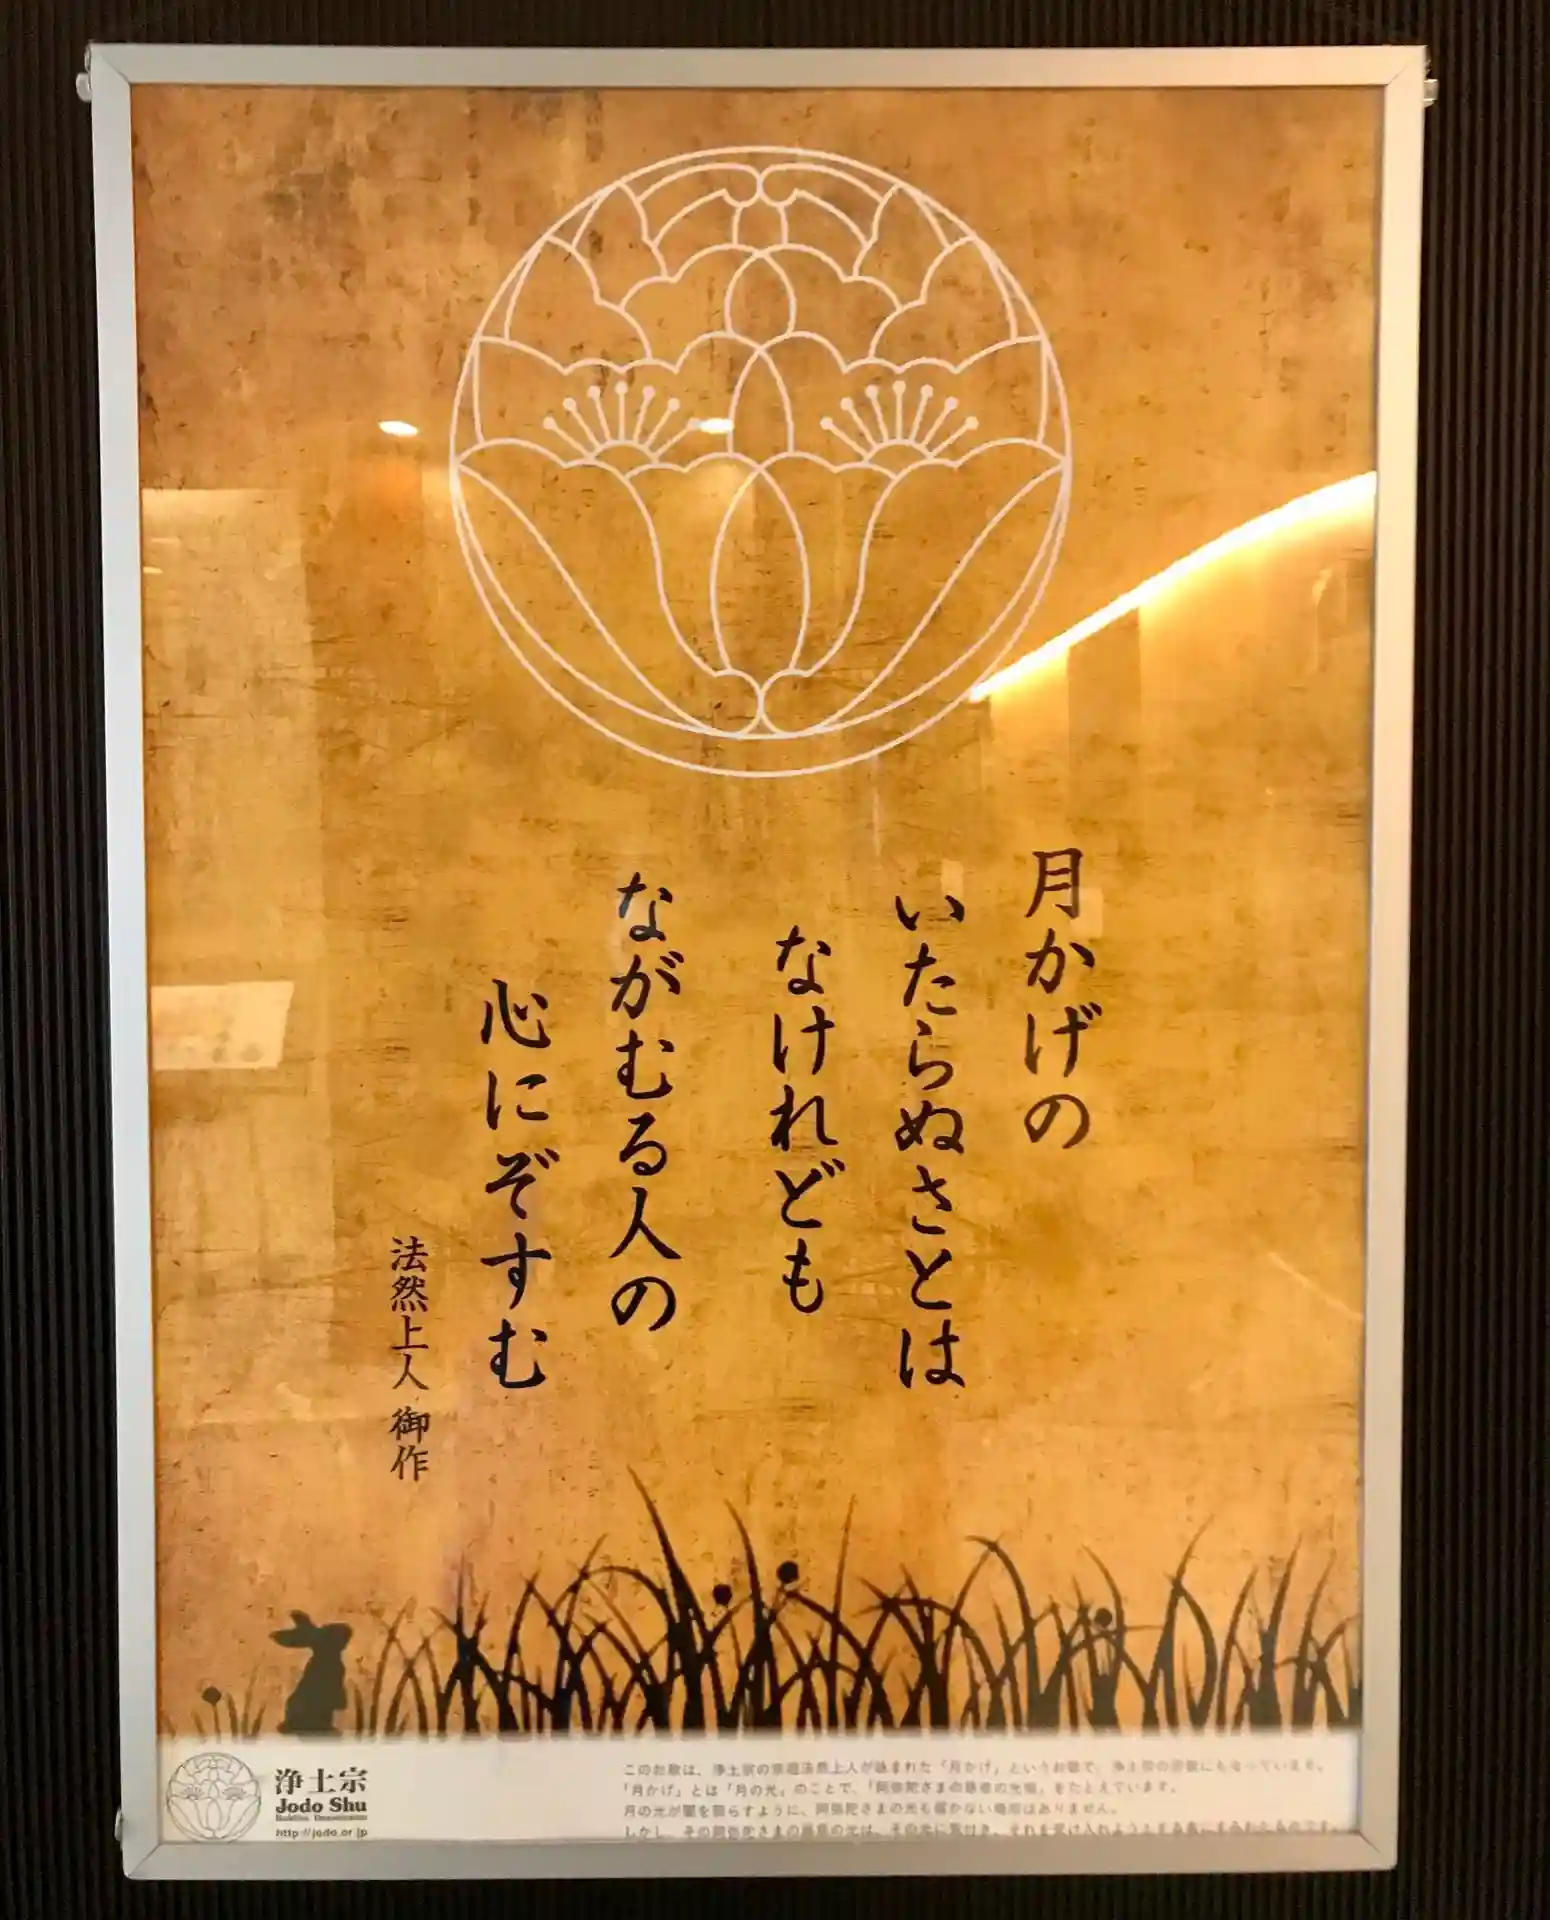 月かげの
いたらぬさとは
なけれども
ながむる人の
心にぞすむ
法然上人 御作
浄土宗
Jodo Shu
Buddhist Denomination
http://jodo.or.jp
このお歌は、浄土宗の宗祖法然上人が詠まれた「月かげ」というお歌で、浄土宗の宗歌にもなっています。
「月かげ」とは「月の光」のことで、「阿弥陀さまの慈悲の光明」をたとえています。
月の光が闇を照らすように、阿弥陀さまの光も届かない場所はありません。
しかし、その阿弥陀さまの慈悲の光は、その光に気付き、それを受け入れようとする